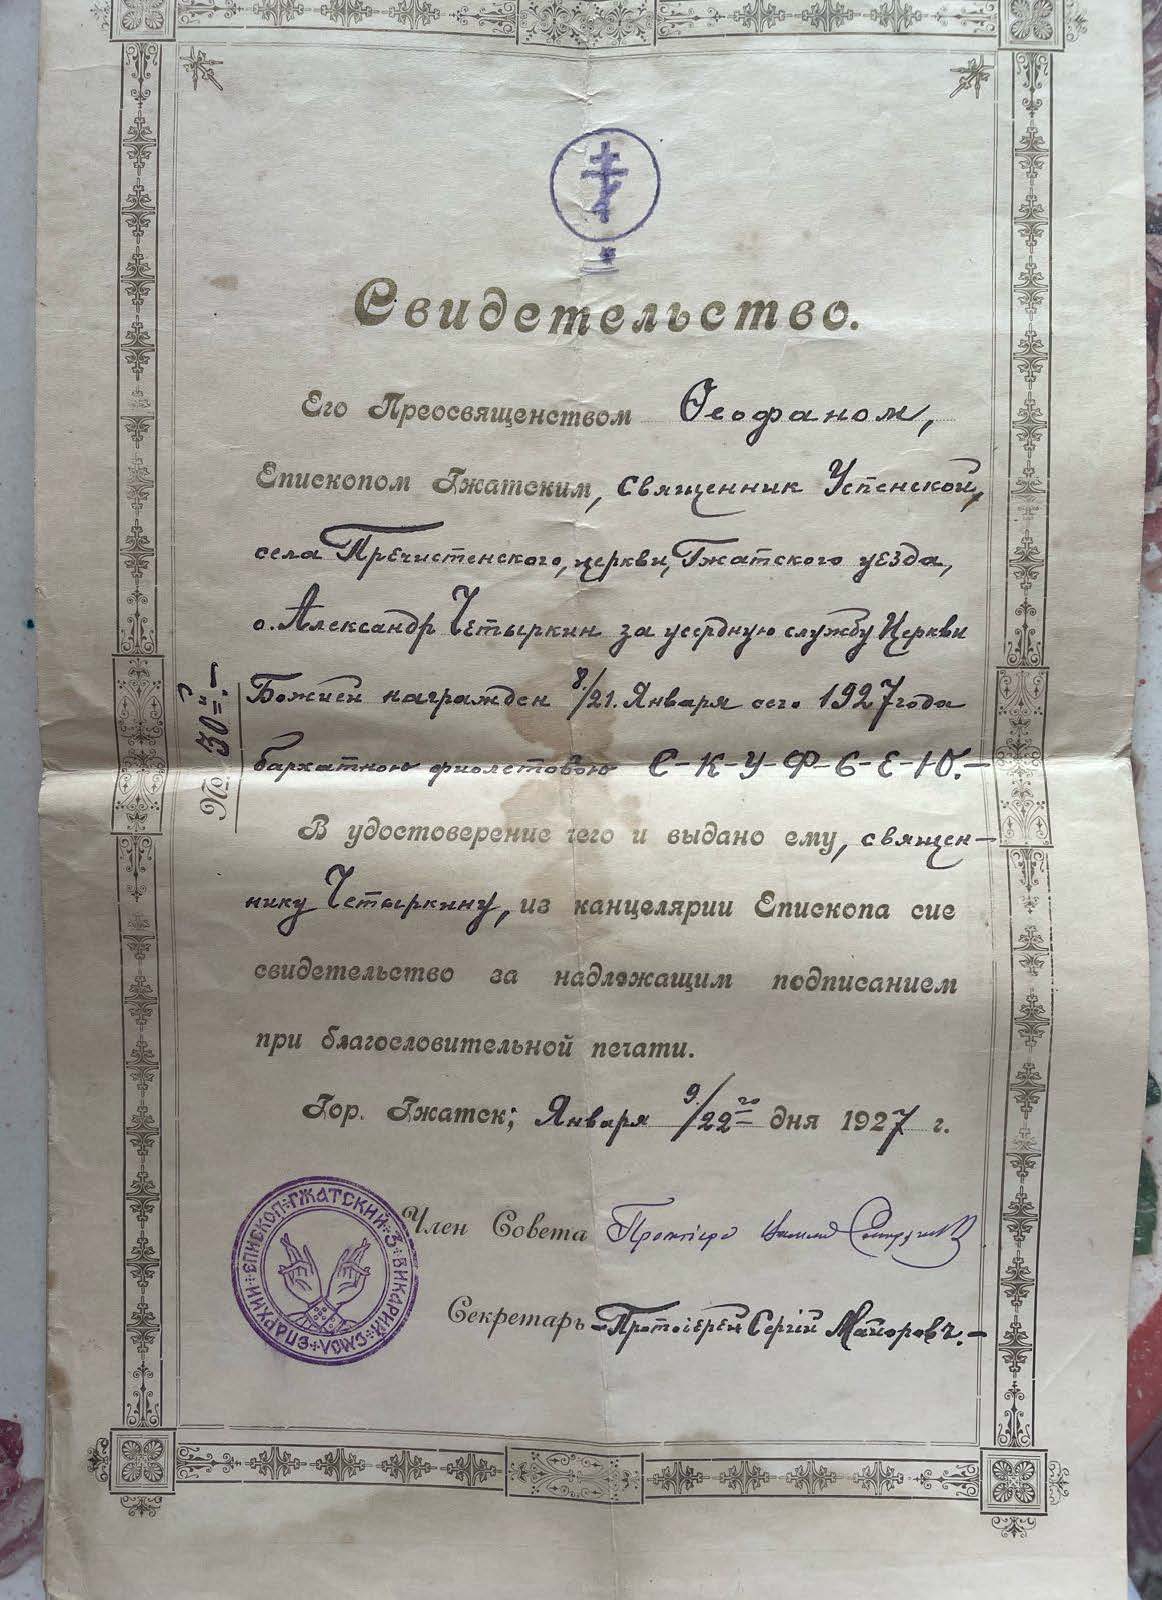 Свидетельство.
Его Преосвященством Ѳеофаном,
Епископом Гжатским, священник Успенской,
села Пречистенского, церкви, Гжатского уезда,
о. Александр Четыркин за усердную службу Церкви
Божией награжден 8/21. Января сего 1927 года
бархатною фиолетовою С-К-У-Ф-Ь-Е-Ю.-
№ 30-й.
В удостоверение чего и выдано ему, священ-
нику Четыркину, из канцелярии Епископа сие
свидетельство за надлежащим подписанием
при благословительной печати.
Гор. Гжатск; Января 9/22го дня 1927 г.
Член Совета Протоіерей
Секретарь-Протоіерей Сергій Майоровъ.-
ЕПИСКОП ГЖАТСКИЙ З ВИКАРИЙ СМОЛ ЕПАРХИИ